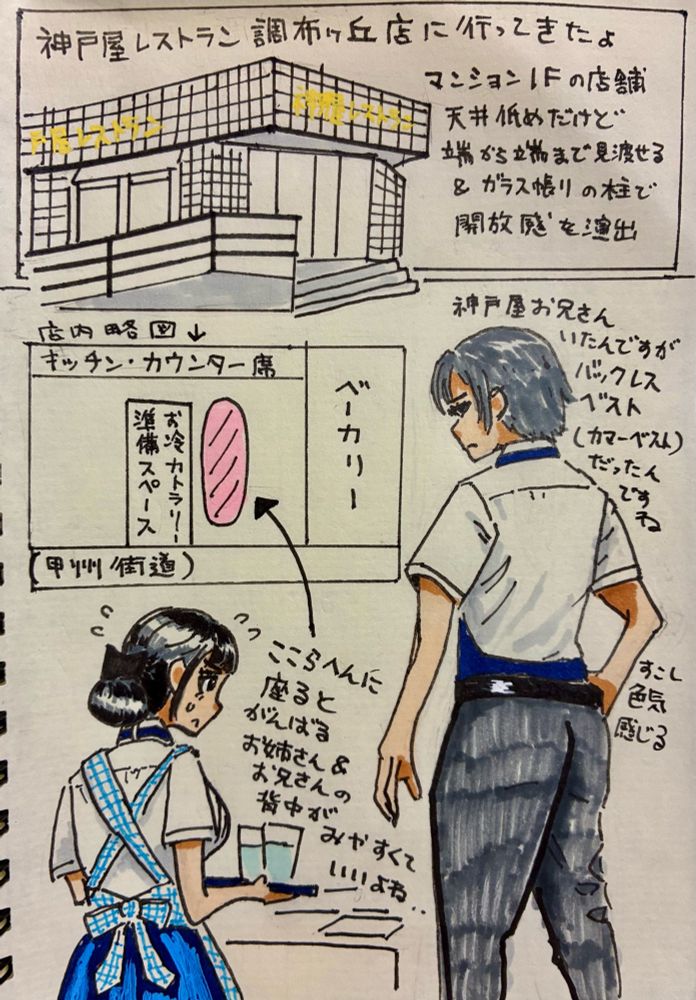 神戸屋レストラン調布ヶ丘店に行ってきたよ
戸屋レストラン
神戸屋レストラン
マンション1Fの店舗
天井低めだけど
端から端まで見渡せる
&ガラス張りの柱で
開放感を演出
店内略図↓
キッチン・カウンター席
お冷カトラリー
準備スペース
ベーカリー
(甲州街道)
神戸屋お兄さん
いたんですが
バックレス
ベスト
(カマーベスト)
だったん
ですね
すこし
色気
感じる
ここらへんに
座ると
がんばる
お姉さん&
お兄さんの
背中が
みやすくて
いいよね..